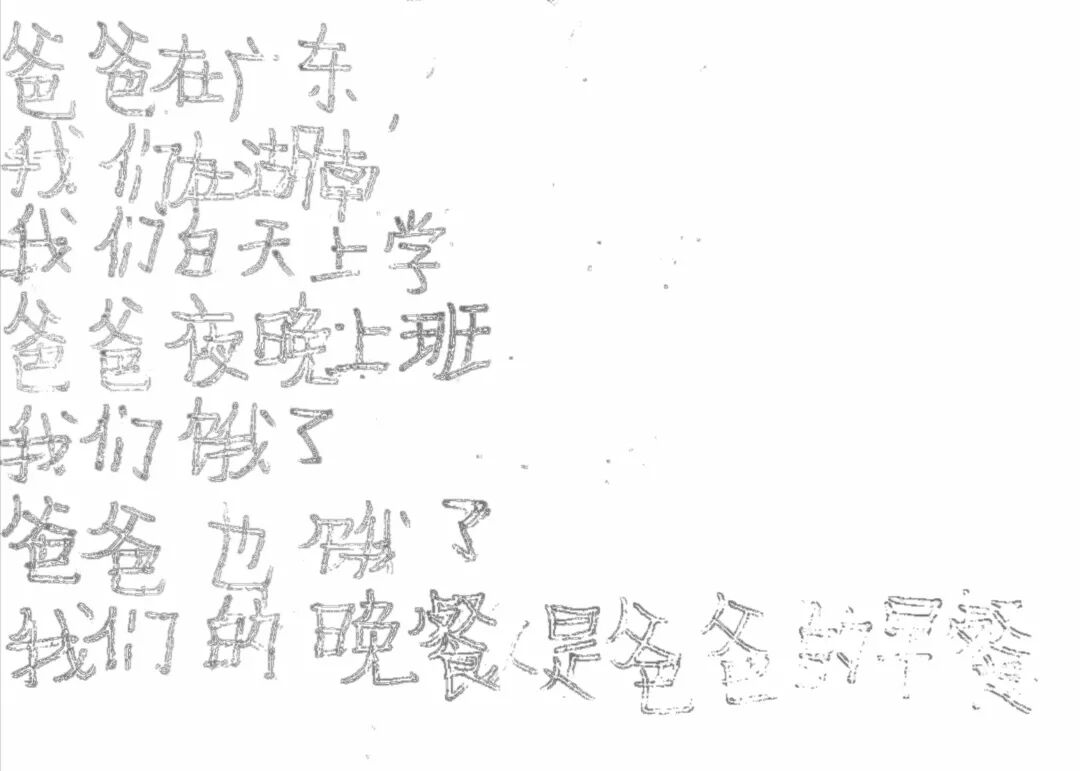 爸爸在广东,
我们在湖南
我们白天上学
爸爸夜晚上班
我们饿了
爸爸也饿了
我们的晚餐是爸爸的早餐